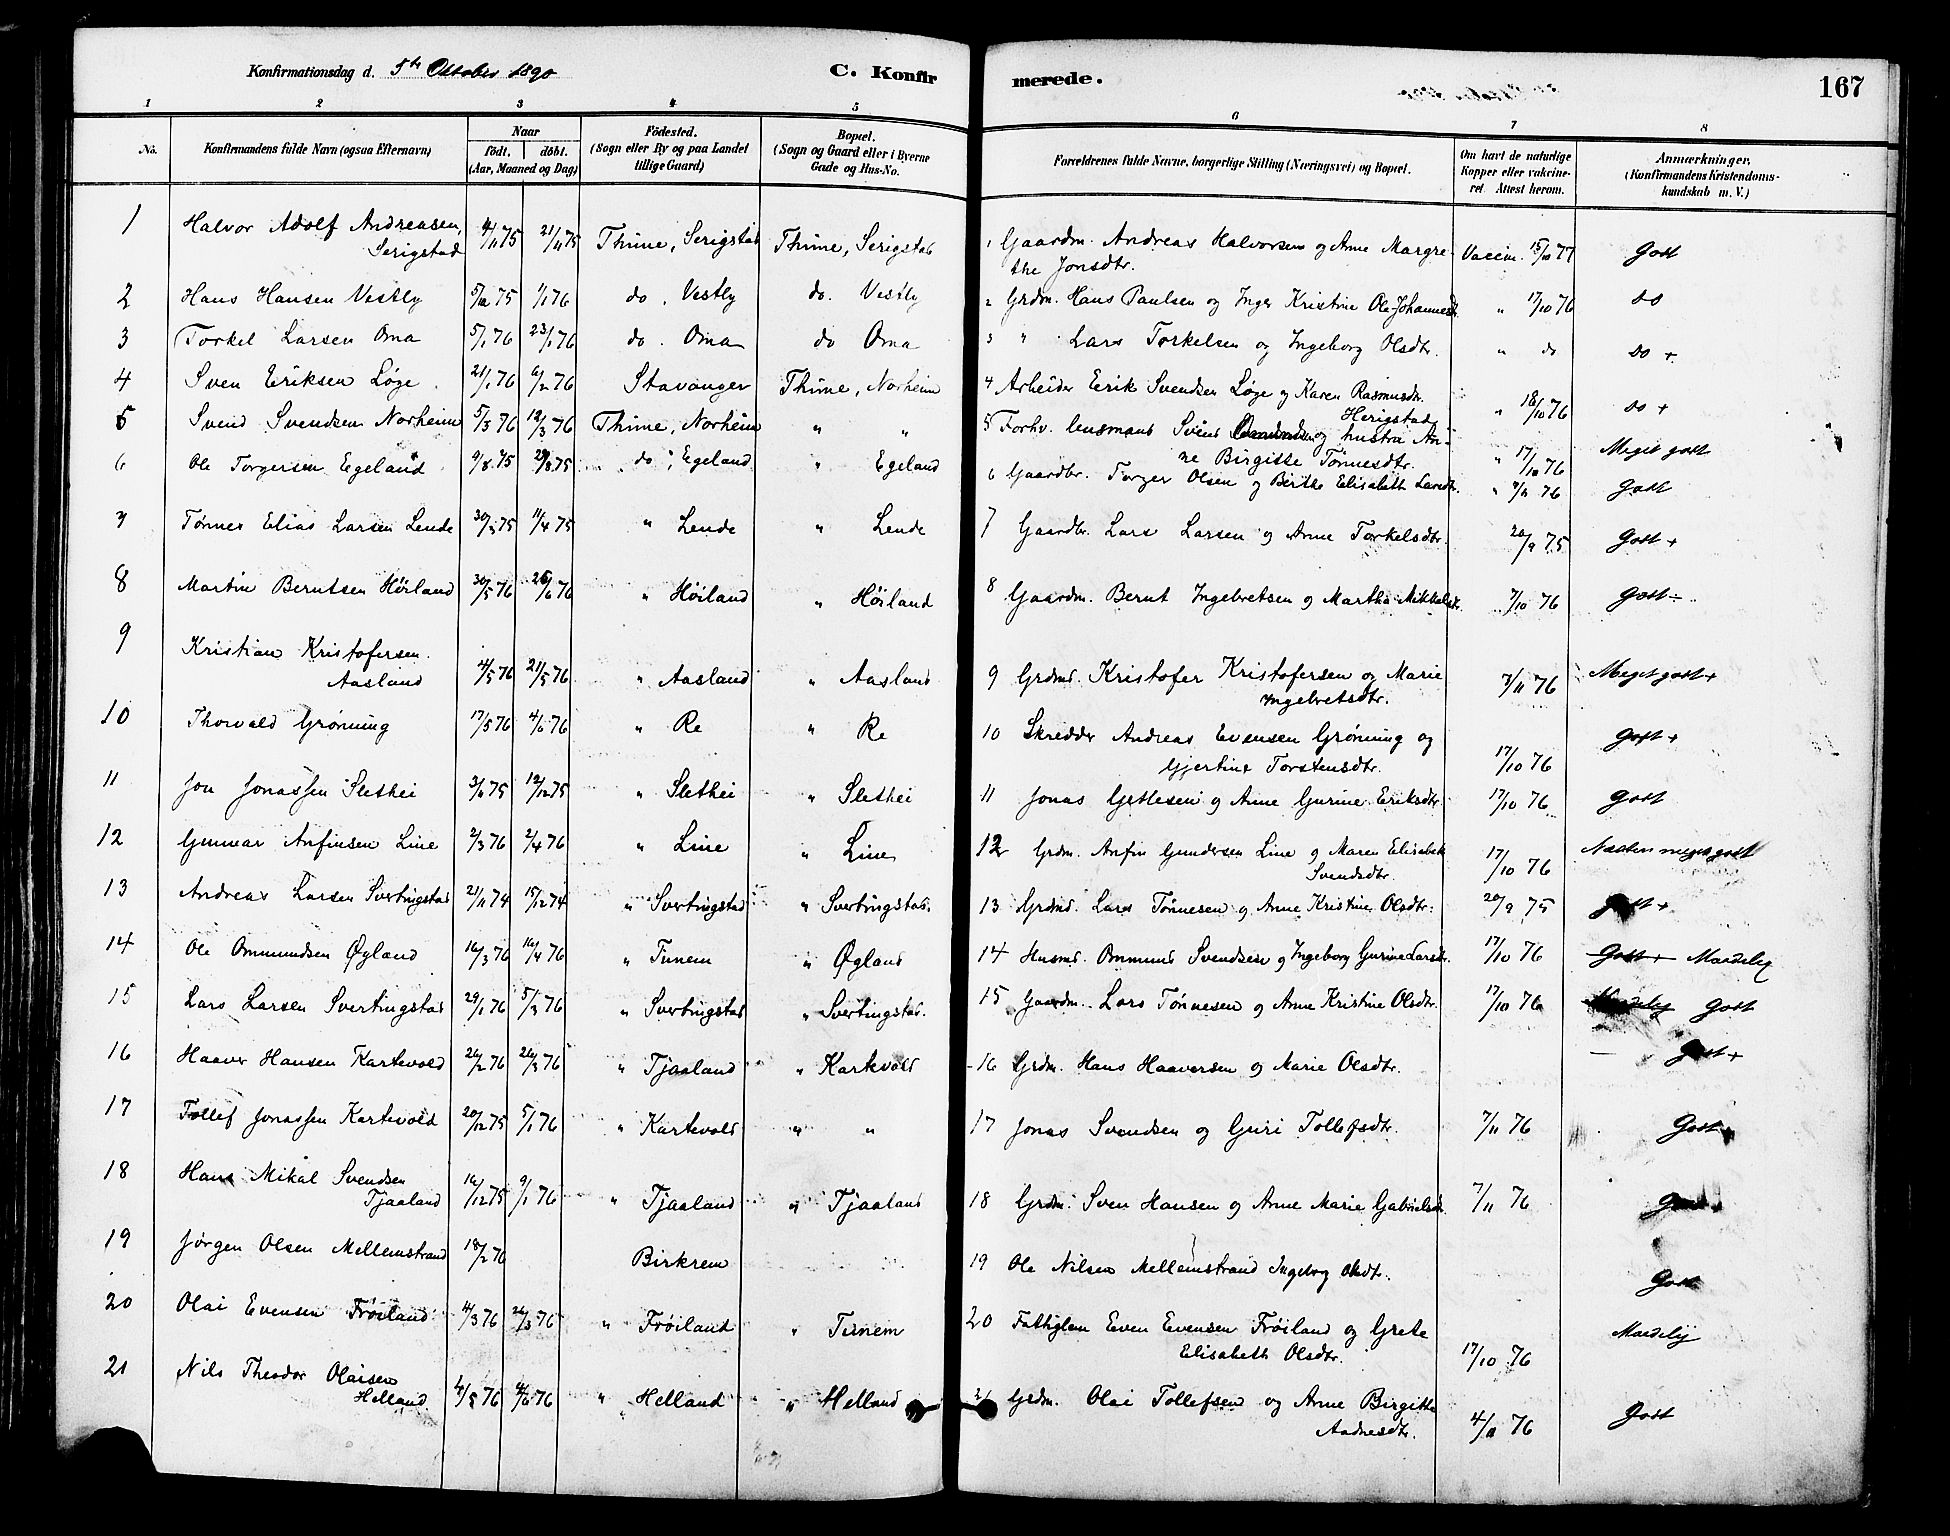 Konfirmationsdag d. 5te Oktober 1890
C. Konfir
merede.
167
1 2 3 4 5 6 7 8
No.
Konfirmandens fulde Navn (ogsaa Efternavn)
Naar
født. døbt.
(Aar, Maaned og Dag)
Fødested.
(Sogn eller By og paa Landet
tillige Gaard)
Bopæl.
(Sogn og Gaard eller i Byerne
Gade og Hus-No.
Forældrenes fulde Navne, borgerlige Stilling (Næringsvei) og Bopæl.
Om havt de naturlige
Kopper eller vakcine-
ret. Attest herom.
Anmærkninger.
(Konfirmandens Kristendoms-
kundskab m. V.)
1 Halvor Adolf Andreasen, 4/11 75 21/11 75 Thime, Serigstad Thime, Serigstad 1 Gaardm. Andreas Halvorsen og Anne Margre- Vaccin. 15/10 77 Godt
Serigstad the Jonsdtr.
2 Hans Hansen Vestly 5/12 75 1/1 76 do. Vestly do. Vestly 2 Grdm. Hans Paulsen og Inger Kristine Ole Johannesdtr. " 17/10 76 do
3 Torkel Larsen Oma 5/1 76 23/1 76 do. Oma do Oma 3 " Lars Torkelsen og Ingeborg Olsdtr. " do do +
4 Sven Eriksen Løge 21/1 76 6/2 76 Stavanger Thime, Norheim 4 Arbeider Eerik Svendsen Løge og Karen Rasmusdtr. " 18/10 76 do +
5 Svend Svendsen Norheim 5/3 76 12/3 76 Thime, Norheim " " 5 Forhv. lensmand Svend Herigstad og hustru An-
ne Birgitte Tønnesdtr. " 17/10 76 Meget godt
6 Ole Torgersen Egeland 9/8 75 29/8 75 do, Egeland " Egeland 6 Gaardbr. Torger Olsen og Birthe Elisabeth Larsdtr. " 7/11 76 Godt
7 Tønnes Elias Larsen Lende 30/3 75 11/4 75 " Lende " Lende 7 Gaardbr. Lars Larsen og Anne Torkelsdtr. 20/9 75 Godt +
8 Martin Berntsen Höiland 30/5 76 25/6 76 " Höiland " Höiland 8 Gaardm. Bernt Ingebretsen og Martha Mikkelsdtr. 7/10 76 Godt ÷
9 Kristian Kristofersen 4/5 76 21/5 76 " Aasland " Aasland 9 Grdmd. Kristofer Kristofersen og Marie 7/11 76 Meget godt +
Aasland Ingebretsdtr.
10 Thorvald Grönning 17/5 76 4/6 76 " Re " Re 10 Skredder Andreas Evensen Grönning og 17/10 76 Godt +
Gjertine Torstensdtr.
11 Jon Jonassen Slethei 3/11 75 12/12 75 " Slethei " Slethei 11 Jonas Gitlesen og Anne Gurine Eriksdtr 17/10 76 Godt
12 Gunnar Anfinsen Line 2/3 76 2/4 76 " Line " Line 12 Grdm. Anfin Gundersen Line og Maren Elisabet 17/10 76 Næsten meget godt
Svendsdtr.
13 Andreas Larsen Svertingstad 21/11 74 15/12 74 " Svertingstad " Svertingstad. 13 Grdmd. Lars Tönnesen og Anne Kristine Olsdtr. 20/9 75 Godt +
14 Ole Ommundsen Øgland 16/3 76 16/4 76 " Tunem " Øgland 14 Husmd. Ommund Svendsen og Ingeborg Gurine Larsdtr. 17/10 76 Godt + Maadelig
15 Lars Larsen Svertingstad 29/1 76 5/3 76 " Svertingstad " Svertingstad. 15 Gaardm. Lars Tönnesen og Anne Kristine Olsdtr. 17/10 76 Maadelig Godt
16 Haaver Hansen Kartevold 26/2 76 26/3 76 " Tjaaland " Kartevold 16 Grdm. Hans Haaversen og Marie Olsdtr. — Godt +
17 Tollef Jonassen Kartevold 20/12 75 5/1 76 " Kartevold " " 17 Jonas Svendsen og Guri Tollefsdtr. 7/11 76 Godt
18 Hans Mikal Svendsen 16/12 75 9/1 76 " Tjaaland " Tjaaland 18 Grdm. Sven Hansen og Anne Marie Gabrielsdtr. 7/11 76 Godt
Tjaaland
19 Jørgen Olsen Mellemstrand 18/2 76 Birkrem 19 Ole Nilsen Mellemstrand Ingeborg Olsdtr. Godt
20 Olai Evensen Frøiland 4/3 76 26/3 76 " Frøiland " Tunem 20 Fattiglem Even Evensen Frøiland og Grete 17/10 76 Maadelig
Elisabeth Olsdtr.
21 Nils Theodor Olaisen 4/5 76 4/6 76 " Helland " Helland 21 Grdm. Olai Tollefsen og Anne Birgitte 4/11 76 Godt
Helland. Aadnesdtr.